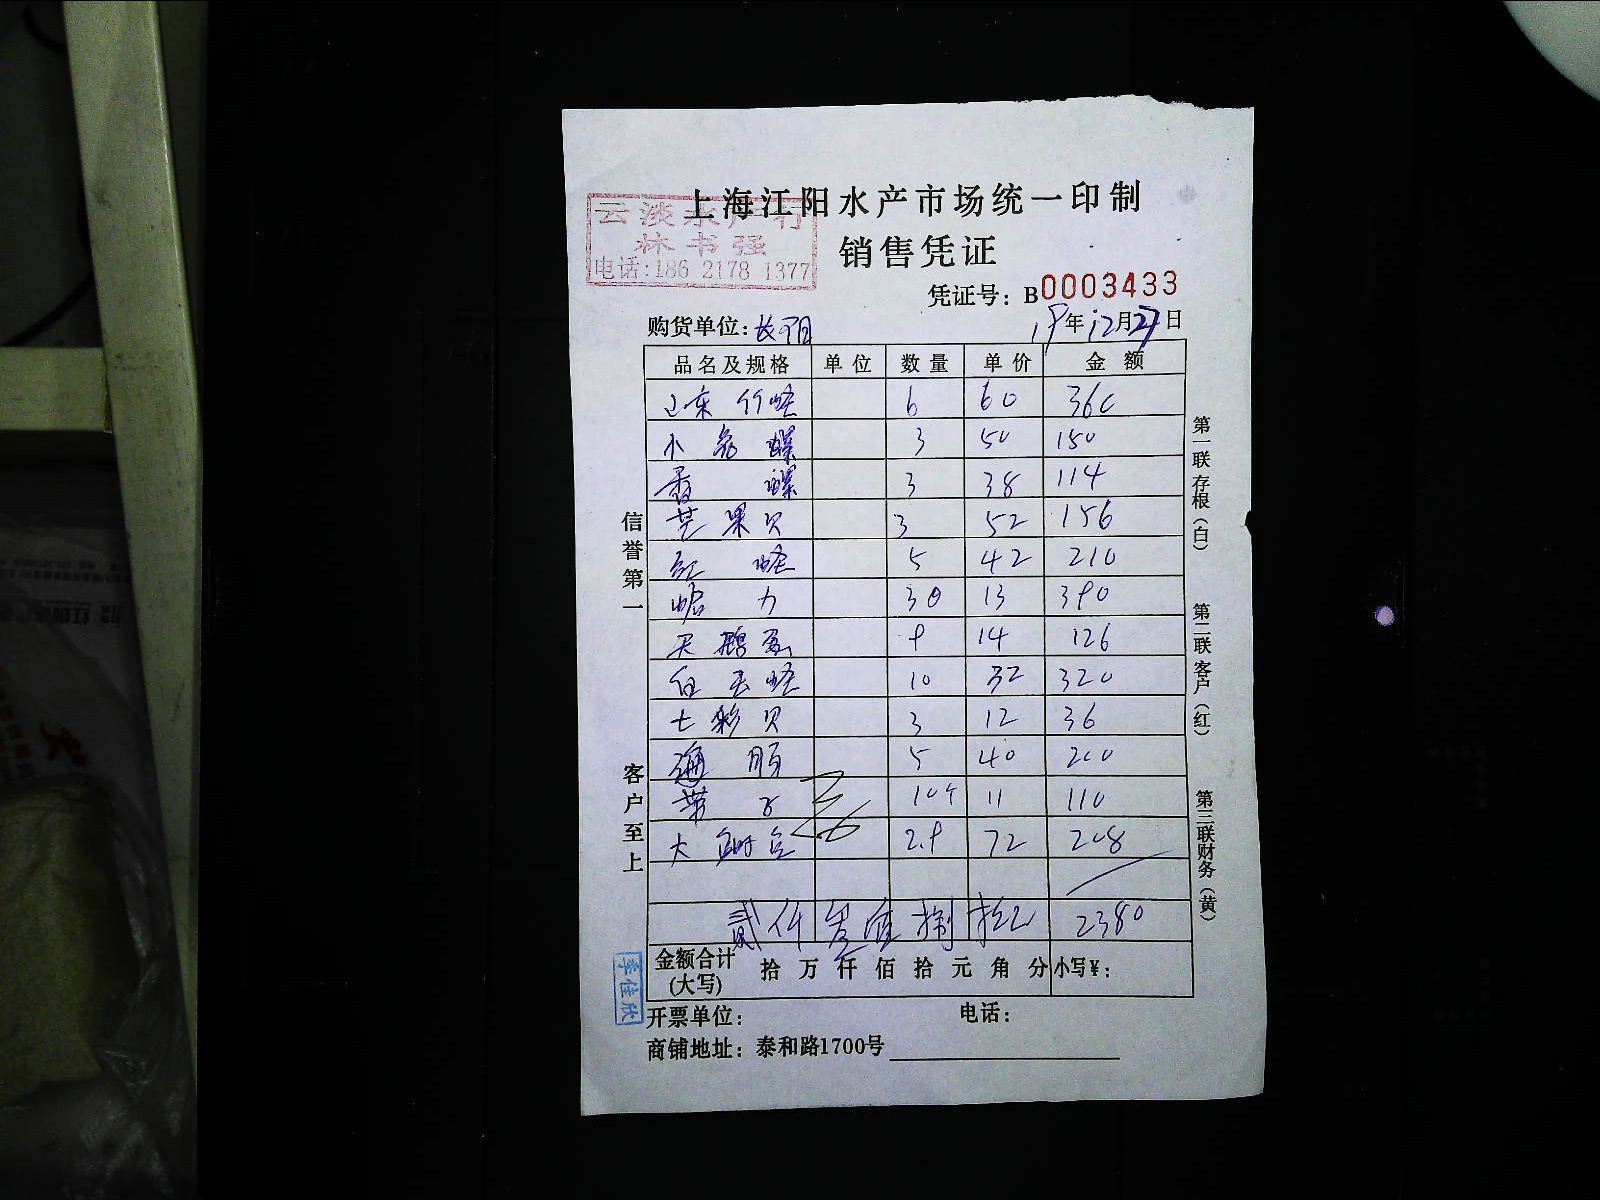 上海江阳水产市场统一印制
云淡水产行
林书强
电话:186 2178 1377
销售凭证
凭证号：B0003433
购货单位：长阳 19年12月27日
品名及规格 单位 数量 单价 金额
山东竹蛏 6 60 360
小花螺 3 50 150
香螺 3 38 114
芒果贝 3 52 156
红蛏 5 42 210
蛤力 30 13 390
天鹅蛋 9 14 126
白玉蛏 10 32 320
七彩贝 3 12 36
海肠 5 40 200
带子 10个 11 110
大鲍 2.9 72 208
贰仟叁佰捌拾 2380
金额合计
(大写)
拾 万 仟 佰 拾 元 角 分 小写¥：
开票单位： 电话：
商铺地址：泰和路1700号
信誉第一
客户至上
第一联存根（白）
第二联客户（红）
第三联财务（黄）
李佳欣